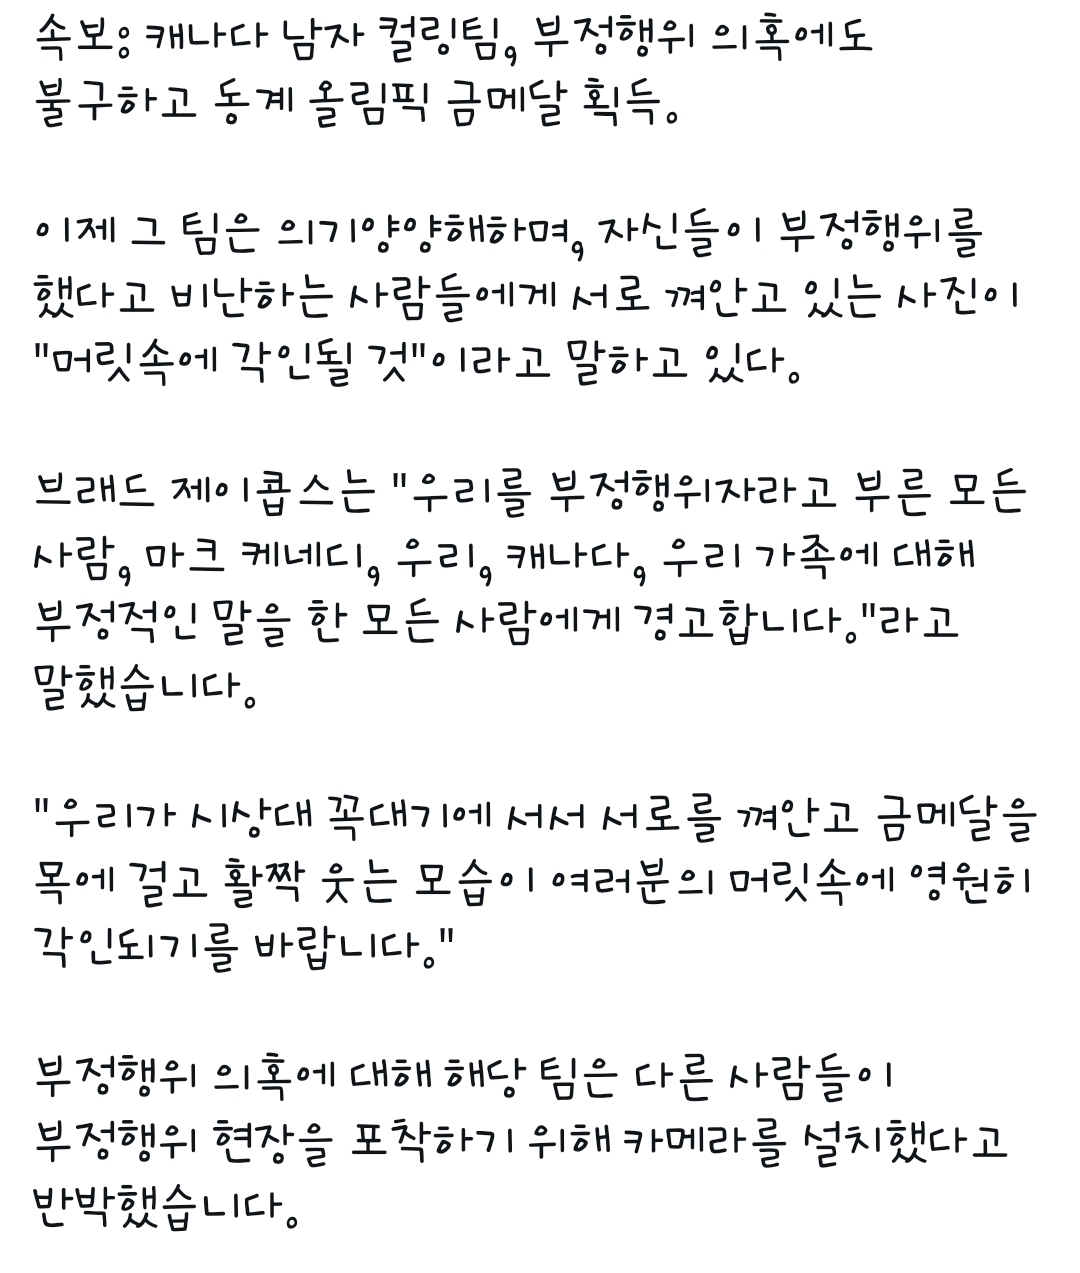 속보: 캐나다 남자 컬링팀, 부정행위 의혹에도
불구하고 동계 올림픽 금메달 획득.
이제 그 팀은 의기양양해하며, 자신들이 부정행위를
했다고 비난하는 사람들에게 서로 껴안고 있는 사진이
"머릿속에 각인될 것"이라고 말하고 있다.
브래드 제이콥스는 "우리를 부정행위자라고 부른 모든
사람, 마크 케네디, 우리, 캐나다, 우리 가족에 대해
부정적인 말을 한 모든 사람에게 경고합니다."라고
말했습니다.
"우리가 시상대 꼭대기에 서서 서로를 껴안고 금메달을
목에 걸고 활짝 웃는 모습이 여러분의 머릿속에 영원히
각인되기를 바랍니다."
부정행위 의혹에 대해 해당 팀은 다른 사람들이
부정행위 현장을 포착하기 위해 카메라를 설치했다고
반박했습니다.